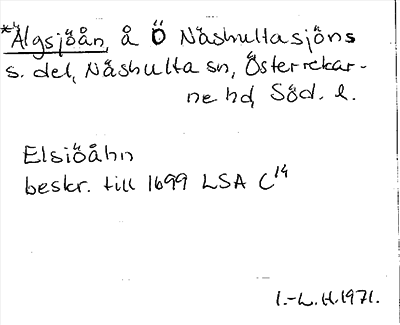 *Älgsjöån, å Ö Näshultasjöns
s. del, Näshulta sn, Österrekar-
ne hd, Söd. l.
Elsiöåhn
beskr. till 1699 LSA C14
I.-L. H. 1971.